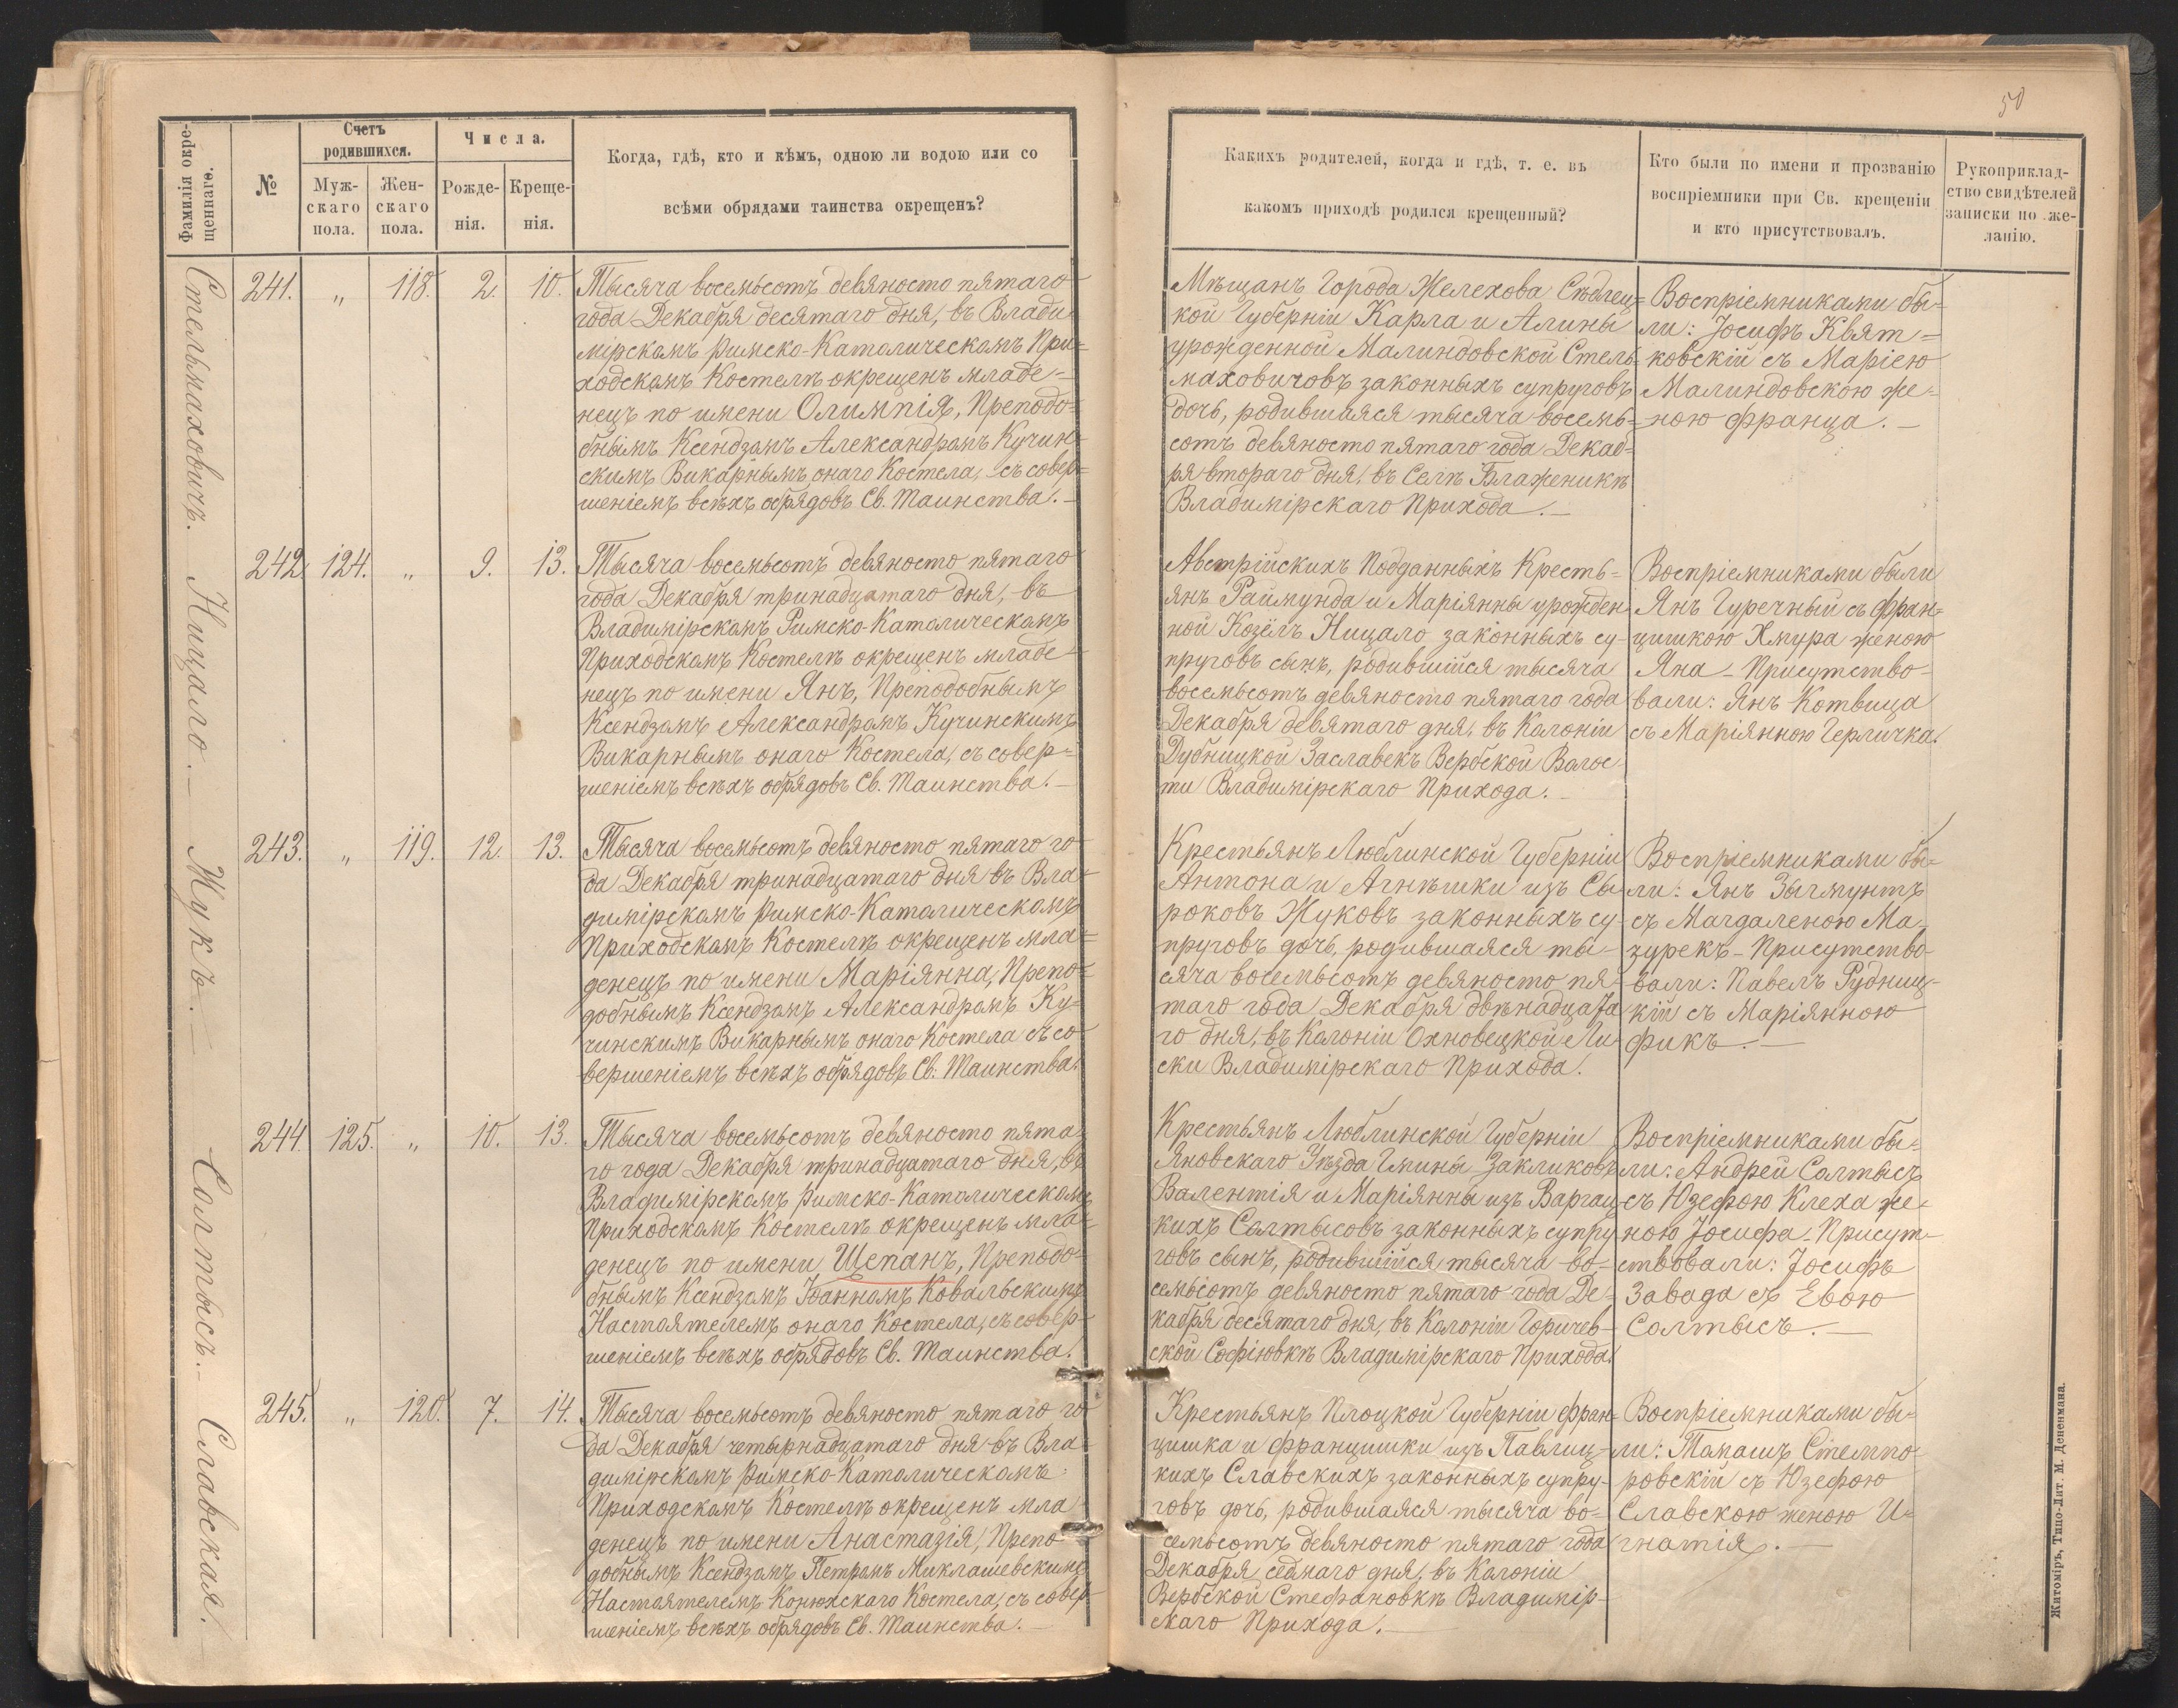 50
Фамилія окре-
щеннаго.
№
Счетъ
родившихся.
Муж-
скаго
пола.
Жен-
скаго
пола.
Числа.
Рожде-
нія.
Креще-
нія.
Когда, гдѣ, кто и кѣмъ, одною ли водою или со
всѣми обрядами таинства окрещенъ?
Какихъ родителей, когда и гдѣ, т. е. въ
какомъ приходѣ родился крещенный?
Кто были по имени и прозванію
воспріемники при Св. крещеніи
и кто присутствовалъ.
Рукоприклад-
ство свидѣтелей
записки по же-
ланію.
Стельмаховичъ.
241. „ 118. 2. 10.
Тысяча восемьсотъ девяносто пятаго
года Декабря десятаго дня, въ Влади-
мірскомъ Римско-Католическомъ При-
ходскомъ Костелѣ окрещенъ младе-
нецъ по имени Олимпія, Преподо-
бнымъ Ксендзомъ Александромъ Кучин-
скимъ Викарнымъ онаго Костела, съ совер-
шеніемъ всѣхъ обрядовъ Св. Таинства. —
Мѣщанъ Города Желехова Сѣдлец-
кой Губерніи Карла и Алины
урожденной Малиндовской Стель-
маховичовъ законныхъ супруговъ
дочь, родившаяся тысяча восемь-
сотъ девяносто пятаго года Декаб-
ря втораго дня, въ Селѣ Блаженикѣ
Владимірскаго Прихода. —
Воспріемниками бы-
ли: Іосифъ Квят=
ковскій съ Маріею
Малиндовскою же-
ною Франца. —
Ницало. —
242. 124. „ 9. 13.
Тысяча восемьсотъ девяносто пятаго
года Декабря тринадцатаго дня, въ
Владимірскомъ Римско-Католическомъ
Приходскомъ Костелѣ окрещенъ младе-
нецъ по имени Янъ, Преподобнымъ
Ксендзомъ Александромъ Кучинскимъ
Викарнымъ онаго Костела, съ совер-
шеніемъ всѣхъ обрядовъ Св. Таинства. —
Австрійскихъ Подданныхъ Кресть-
янъ Раймунда и Маріянны урожден-
ной Козёлъ Ницало законныхъ су-
пруговъ сынъ, родившійся тысяча
восемьсотъ девяносто пятаго года
Декабря девятаго дня, въ Колоніи
Дубницкой Заставекъ Вербской Волос-
ти Владимірскаго Прихода. —
Воспріемниками были
Янъ Гуречный съ Фран-
цишкою Хмура женою
Яна — Присутство-
вали: Янъ Котвица
съ Маріянною Герличка.
Жукъ. —
243. „ 119. 12. 13.
Тысяча восемьсотъ девяносто пятаго го-
да Декабря тринадцатаго дня въ Вла-
димірскомъ Римско-Католическомъ
Приходскомъ Костелѣ окрещенъ мла-
денецъ по имени Маріянна, Препо-
добнымъ Ксендзомъ Александромъ Ку-
чинскимъ Викарнымъ онаго Костела съ со-
вершеніемъ всѣхъ обрядовъ Св. Таинства.
Крестьянъ Люблинской Губерніи
Антона и Агнѣшки изъ Сы-
роковъ Жуковъ законныхъ су-
пруговъ дочь, родившаяся ты-
сяча восемьсотъ девяносто пя-
таго года Декабря двѣнадцата-
го дня, въ Колоніи Охновецкой Ли-
ски Владимірскаго Прихода.
Воспріемниками бы-
ли: Янъ Зыгмунтъ
съ Магдаленою Ма-
зурекъ — Присутство-
вали: Павелъ Рудниц-
кій съ Маріянною
Фикъ. —
Солтысъ. —
244. 125. „ 10. 13.
Тысяча восемьсотъ девяносто пята-
го года Декабря тринадцатаго дня, въ
Владимірскомъ Римско-Католическомъ
Приходскомъ Костелѣ окрещенъ мла-
денецъ по имени Щепанъ, Преподо-
бнымъ Ксендзомъ Іоанномъ Ковальскимъ
Настоятелемъ онаго Костела, съ совер-
шеніемъ всѣхъ обрядовъ Св. Таинства.
Крестьянъ Люблинской Губерніи
Яновскаго Уѣзда Гмины Закликовъ
Валентія и Маріянны изъ Варгац-
кихъ Солтысовъ законныхъ супру-
говъ сынъ, родившійся тысяча во-
семьсотъ девяносто пятаго года Де-
кабря десятаго дня, въ Колоніи Горичев-
ской Софіювкѣ Владимірскаго Прихода.
Воспріемниками бы-
ли: Андрей Солтысъ
съ Юзефою Клеха же-
ною Іосифа. Присут-
ствовали: Іосифъ
Завада съ Евою
Солтысъ. —
Славская.
245. „ 120. 7. 14.
Тысяча восемьсотъ девяносто пятаго го-
да Декабря четырнадцатаго дня въ Вла-
димірскомъ Римско-Католическомъ
Приходскомъ Костелѣ окрещенъ мла-
денецъ по имени Анастазія, Препо-
добнымъ Ксендзомъ Петромъ Миклашевскимъ
Настоятелемъ Конюхскаго Костела, съ совер-
шеніемъ всѣхъ обрядовъ Св. Таинства. —
Крестьянъ Плоцкой Губерніи Фран-
цишка и Францишки изъ Павлиц-
кихъ Славскихъ законныхъ супру-
говъ дочь, родившаяся тысяча во-
семьсотъ девяносто пятаго года
Декабря седмаго дня, въ Колоніи
Вербской Стефановкѣ Владимір-
скаго Прихода. —
Воспріемниками бы-
ли: Томашъ Стемпо-
ровскій съ Юзефою
Славскою женою И-
гнатія. —
Житоміръ, Типо-Лит. М. Дененмана.